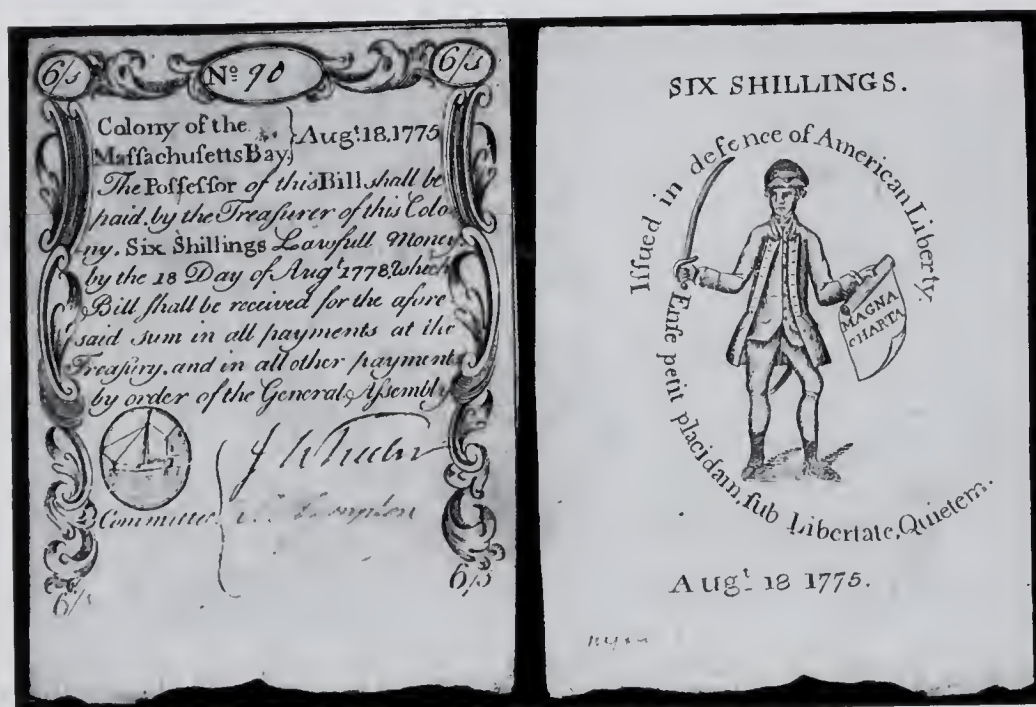 6/s Nº 90 6/s
Colony of the
Maſſachuſetts Bay. } Augt. 18. 1775
The Poſſeſſor of this Bill ſhall be
paid, by the Treaſurer of this Colo
ny, Six Shillings Lawfull Money,
by the 18 Day of Augt. 1778, which
Bill ſhall be received for the afore
said sum in all payments at the
Treaſury, and in all other payments
by order of the General Aſſembly
Committee
6/s 6/s
SIX SHILLINGS.
Iſſued in defence of American Liberty.
MAGNA
CHARTA
Enſe petit placidam, ſub Libertate, Quietem.
Augt. 18 1775.